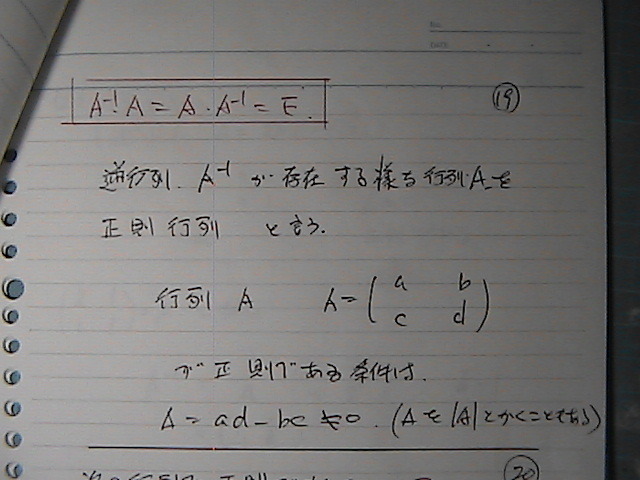 No.
DATE
A⁻¹A = A・A⁻¹ = E.
⑲
逆行列 A⁻¹ が存在する様な行列Aを
正則行列 と言う.
行列 A A = ( a b
c d )
が正則である条件は.
Δ = ad - bc ≠ 0. (Δを|A|とかくこともある)
⑳